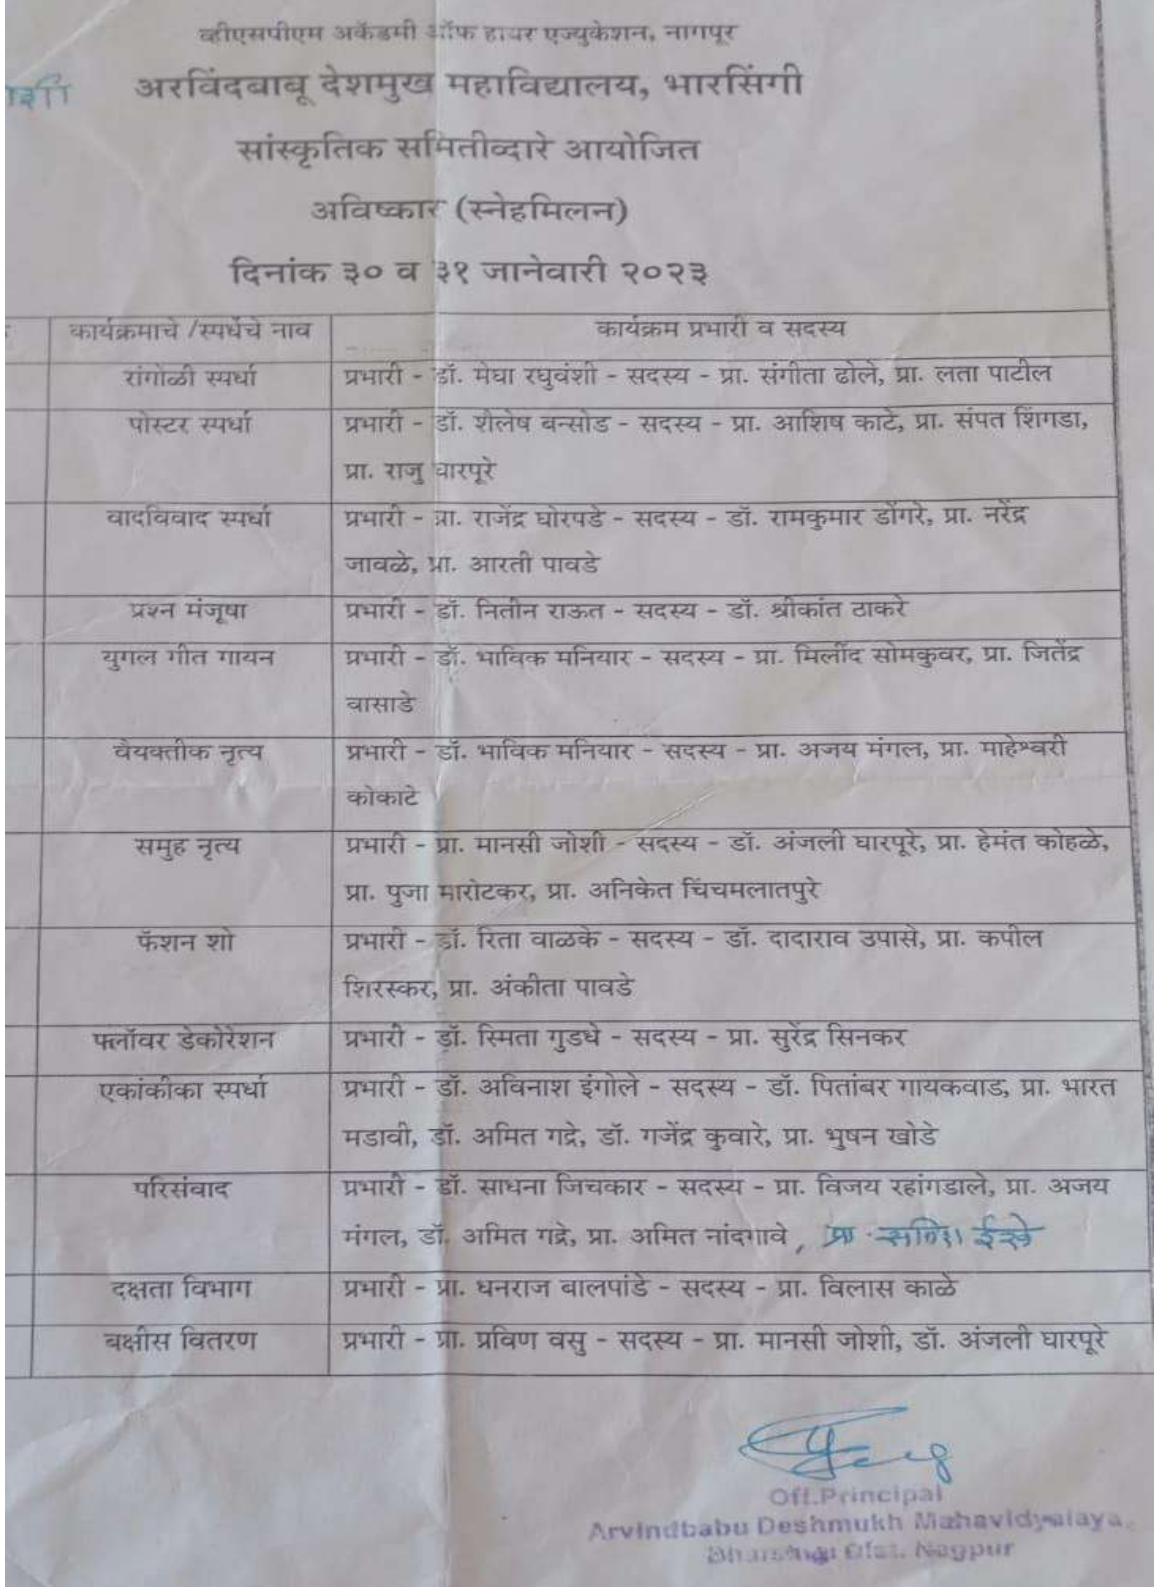 व्हीएसपीएम अकॅडमी ऑफ हायर एज्युकेशन, नागपूर
अरविंदबाबू देशमुख महाविद्यालय, भारसिंगी
सांस्कृतिक समितीव्दारे आयोजित
अविष्कार (स्नेहमिलन)
दिनांक ३० व ३१ जानेवारी २०२३
कार्यक्रमाचे /स्पर्धेचे नाव कार्यक्रम प्रभारी व सदस्य
रांगोळी स्पर्धा प्रभारी - डॉ. मेघा रघुवंशी - सदस्य - प्रा. संगीता ढोले, प्रा. लता पाटील
पोस्टर स्पर्धा प्रभारी - डॉ. शैलेष बन्सोड - सदस्य - प्रा. आशिष काटे, प्रा. संपत शिंगडा,
प्रा. राजु घारपूरे
वादविवाद स्पर्धा प्रभारी - प्रा. राजेंद्र घोरपडे - सदस्य - डॉ. रामकुमार डोंगरे, प्रा. नरेंद्र
जावळे, प्रा. आरती पावडे
प्रश्न मंजूषा प्रभारी - डॉ. नितीन राऊत - सदस्य - डॉ. श्रीकांत ठाकरे
युगल गीत गायन प्रभारी - डॉ. भाविक मनियार - सदस्य - प्रा. मिलींद सोमकुवर, प्रा. जितेंद्र
वासाडे
वैयक्तीक नृत्य प्रभारी - डॉ. भाविक मनियार - सदस्य - प्रा. अजय मंगल, प्रा. माहेश्वरी
कोकाटे
समुह नृत्य प्रभारी - प्रा. मानसी जोशी - सदस्य - डॉ. अंजली घारपूरे, प्रा. हेमंत कोहळे,
प्रा. पुजा मारोटकर, प्रा. अनिकेत चिंचमलातपुरे
फॅशन शो प्रभारी - डॉ. रिता वाळके - सदस्य - डॉ. दादाराव उपासे, प्रा. कपील
शिरस्कर, प्रा. अंकीता पावडे
फ्लॉवर डेकोरेशन प्रभारी - डॉ. स्मिता गुडधे - सदस्य - प्रा. सुरेंद्र सिनकर
एकांकीका स्पर्धा प्रभारी - डॉ. अविनाश इंगोले - सदस्य - डॉ. पितांबर गायकवाड, प्रा. भारत
मडावी, डॉ. अमित गद्रे, डॉ. गजेंद्र कुवारे, प्रा. भुषन खोडे
परिसंवाद प्रभारी - डॉ. साधना जिचकार - सदस्य - प्रा. विजय रहांगडाले, प्रा. अजय
मंगल, डॉ. अमित गद्रे, प्रा. अमित नांदगावे, प्रा.
दक्षता विभाग प्रभारी - प्रा. धनराज बालपांडे - सदस्य - प्रा. विलास काळे
बक्षीस वितरण प्रभारी - प्रा. प्रविण वसु - सदस्य - प्रा. मानसी जोशी, डॉ. अंजली घारपूरे
Off.Principal
Arvindbabu Deshmukh Mahavidyalaya,
Bharsingi Dist. Nagpur